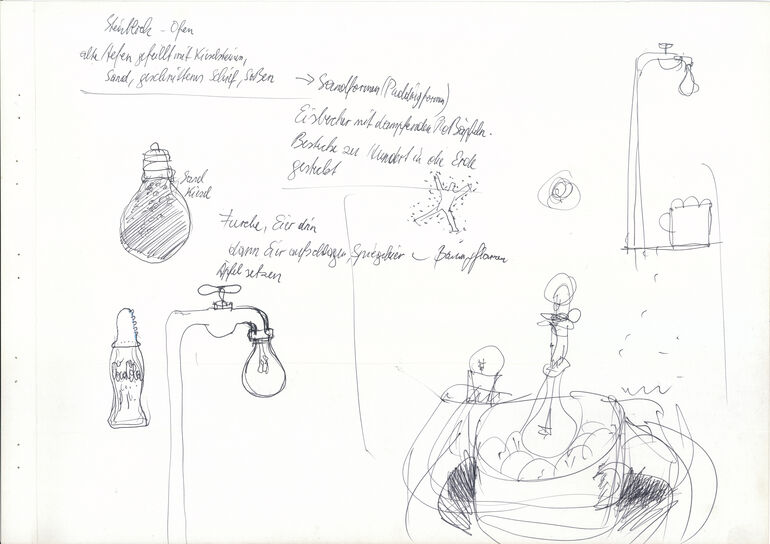 Steinblock - Ofen
alte Hefen gefüllt mit Kieselsteinen,
Sand, geschnittenem Schilf, Soßen
→ Sandformen (Puddingformen)
Eisbecher mit dampfenden Roßäpfeln.
Bestecke zu Hundert in die Erde
gesteckt
Sand
Kiesel
Furche, Eier drin
dann Eier aufschlagen, Spiegeleier
Äpfel setzen